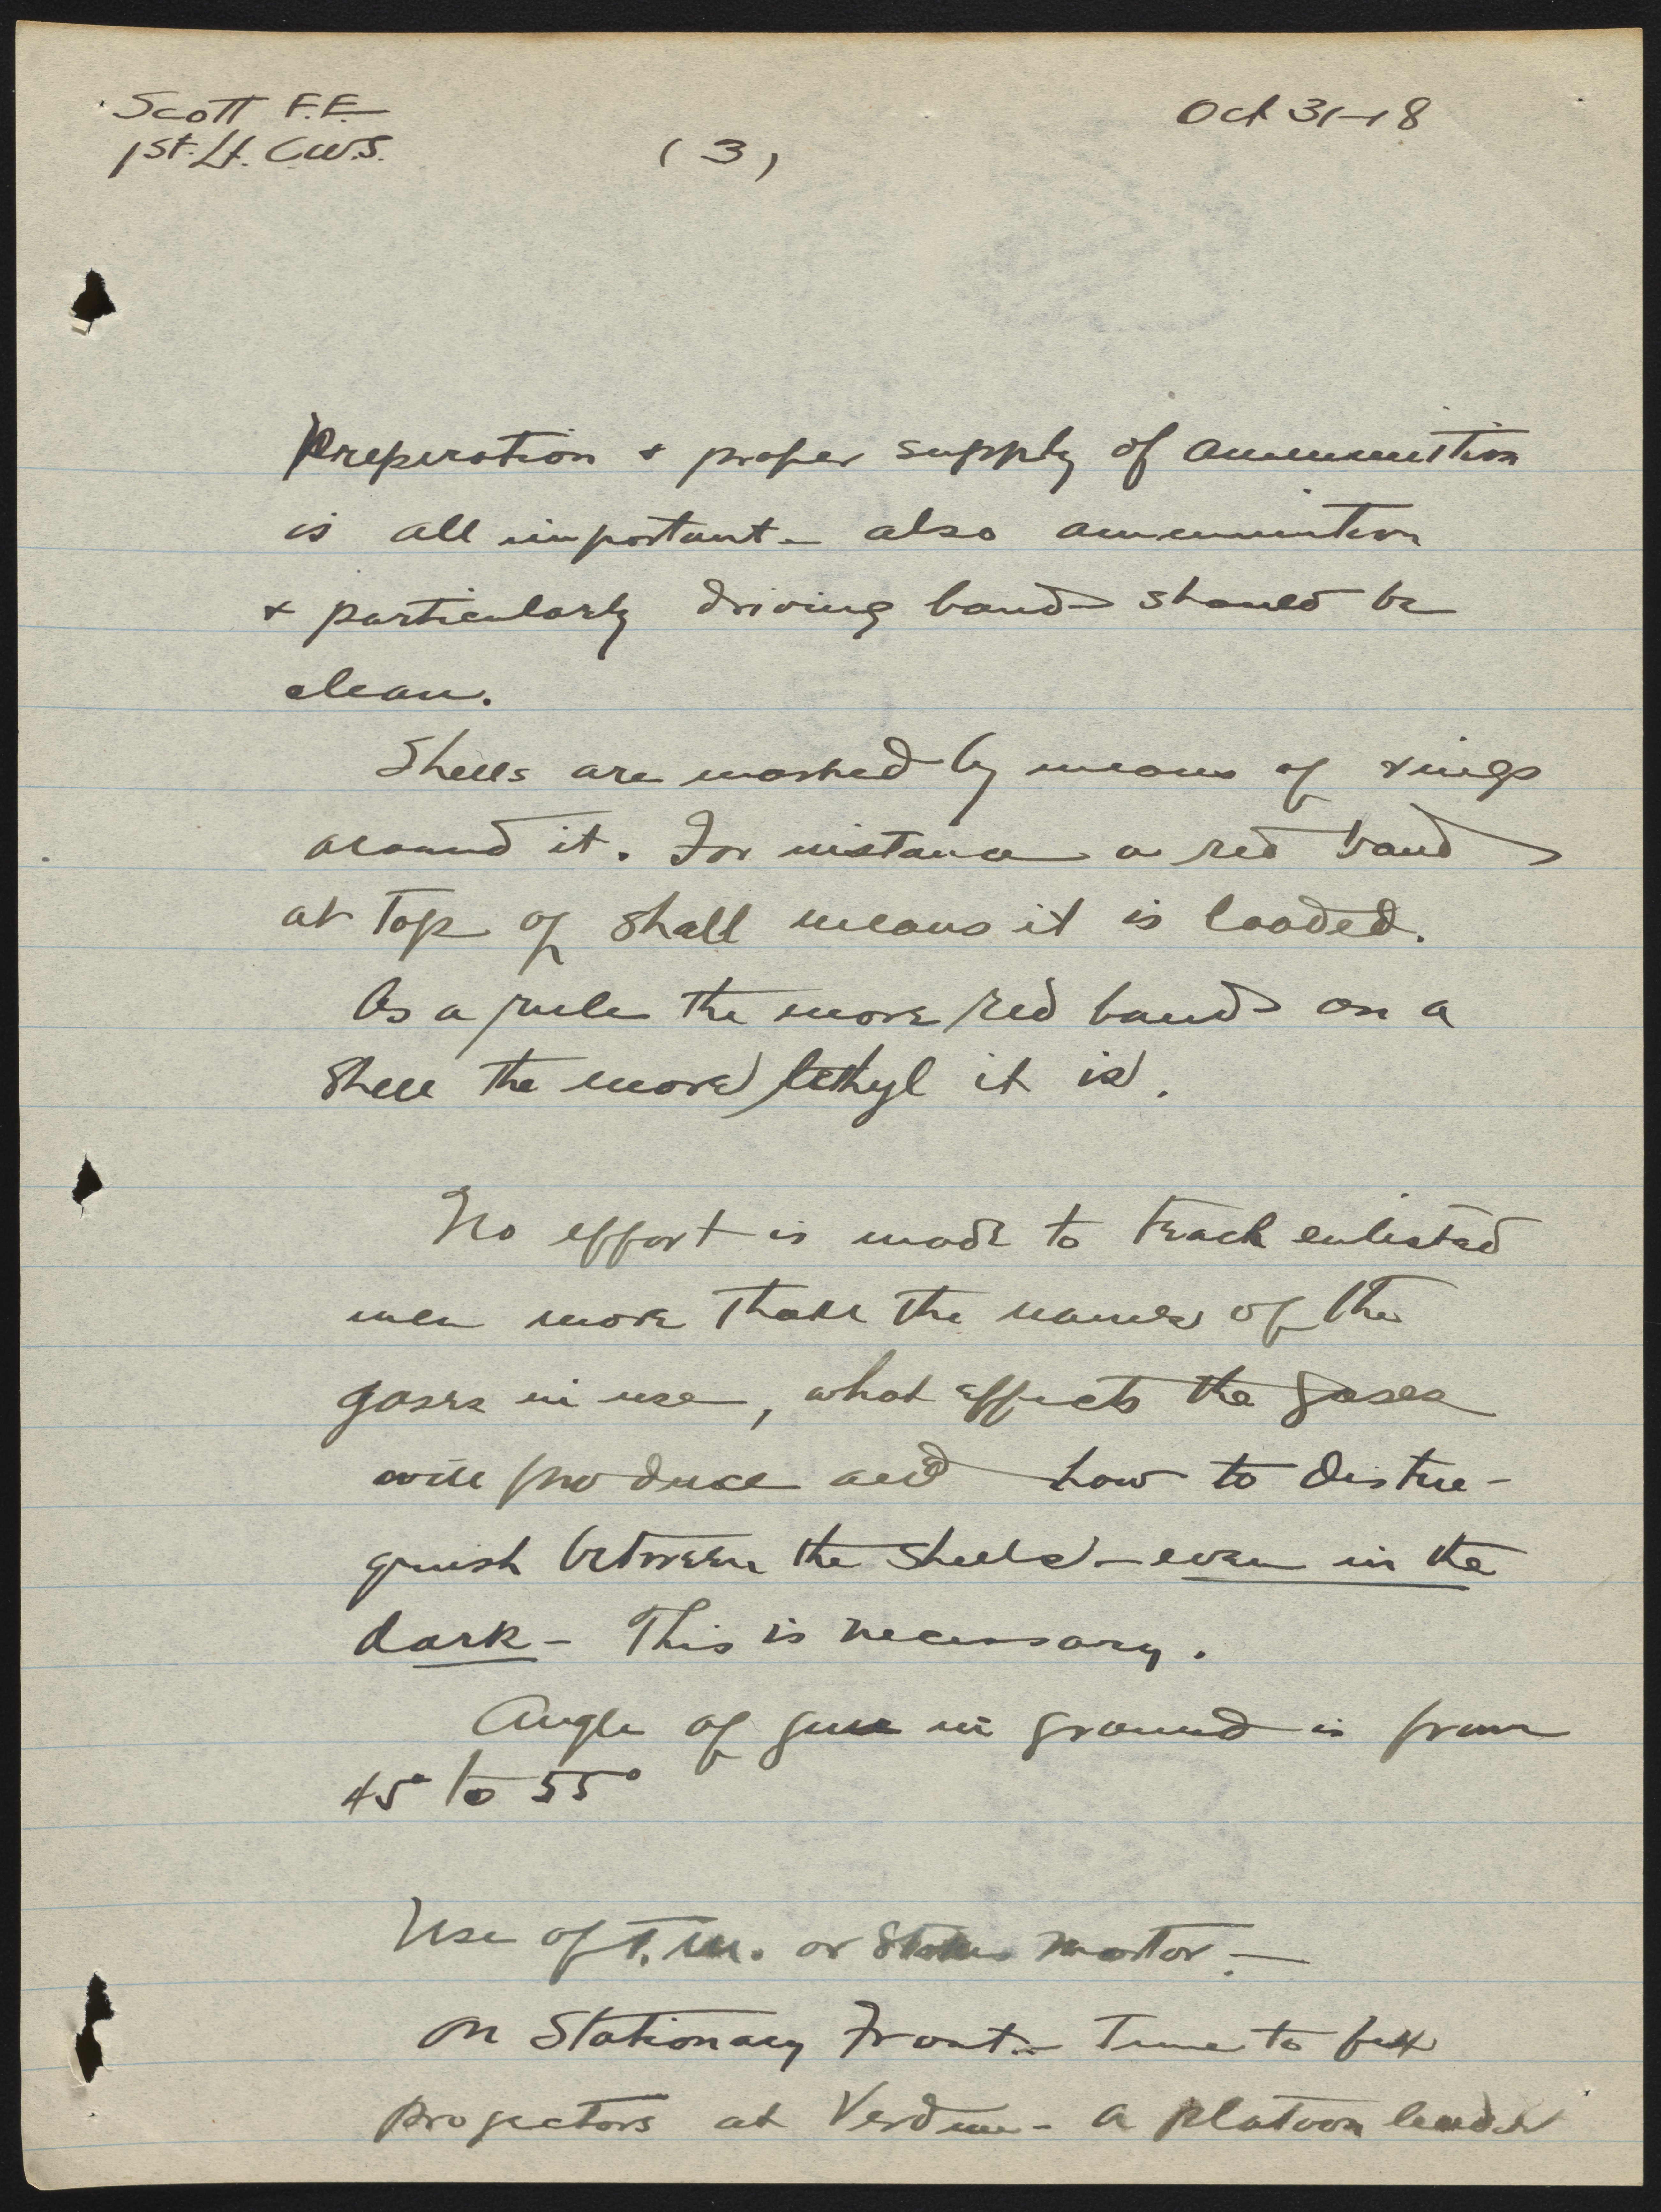 Scott F.F.
1st. Lt. C.W.S.
(3)
Oct 31-18
Preperation & proper supply of ammunition
is all important - also ammunition
& particularly driving bands should be
clean.
Shells are marked by means of rings
around it. For instance a red band
at top of shell means it is loaded.
As a rule the more red bands on a
shell the more lethyl it is.
No effort is made to teach enlisted
men more than the names of the
gases in use, what effects the gases
will produce and how to distin-
guish between the shells - even in the
dark - This is necessary.
Angle of gun in ground is from
45° to 55°
Use of T.M. or Stokes Mortor. -
On Stationary Front - Time to
projectors at Verdun - a platoon leader